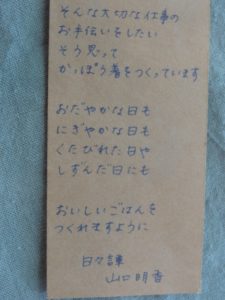 そんな大切な仕事の
お手伝いをしたい
そう思って
かっぽう着をつくっています
おだやかな日も
にぎやかな日も
くたびれた日や
しずんだ日にも
おいしいごはんを
つくれますように
日々諫
山口明香